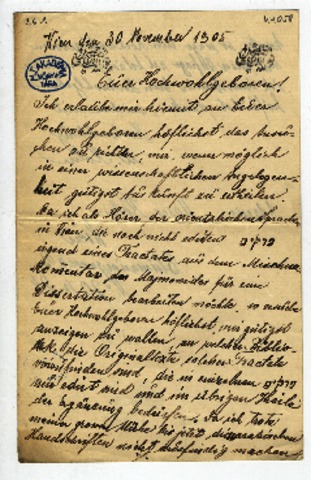 Wien den 30 November 1905
Euer Hochwohlgeboren!
Ich erlaube mir hiemit an Euer
Hochwohlgeboren höflichst, das Ansu-
chen zu richten, mir, wenn möglich
in einer wissenschaftlichen Angelegen-
heit gütigst Auskunft zu erteilen.
Da ich als Hörer der orientalischen Sprachen
in Wien, die noch nicht edirten פרקים
irgend eines Tractates aus dem Mischna
Komentar des Majmonides für eine
Dissertation bearbeiten möchte, so
Euer Hochwohlgeboren höflichst, mir gütigst
anzeigen zu wollen, in welcher Biblio-
teke die Originaltexte solcher Tractate
sind, die in einzelnen פרקים
nur edirt sind und im übrigen Theile
der Ergänzung bedürfen, da ich trotz
meiner grossen Mühe bis jetzt
Handschriften nicht ausfindig machen